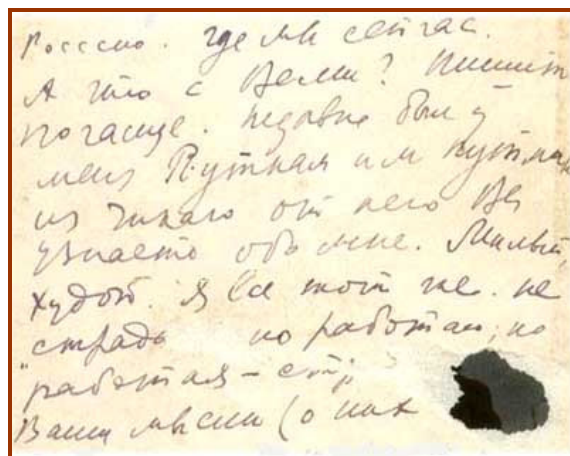 Россию. где мы сейчас.
А что с Вами? Пишите
почаще. Недавно был у
меня Путная или Путна
из чикаго от него Вы
узнаете обо мне. Милый,
худой. Я все тот же. не
"страдая но работаю, но
работая –
Ваши мысли (о них